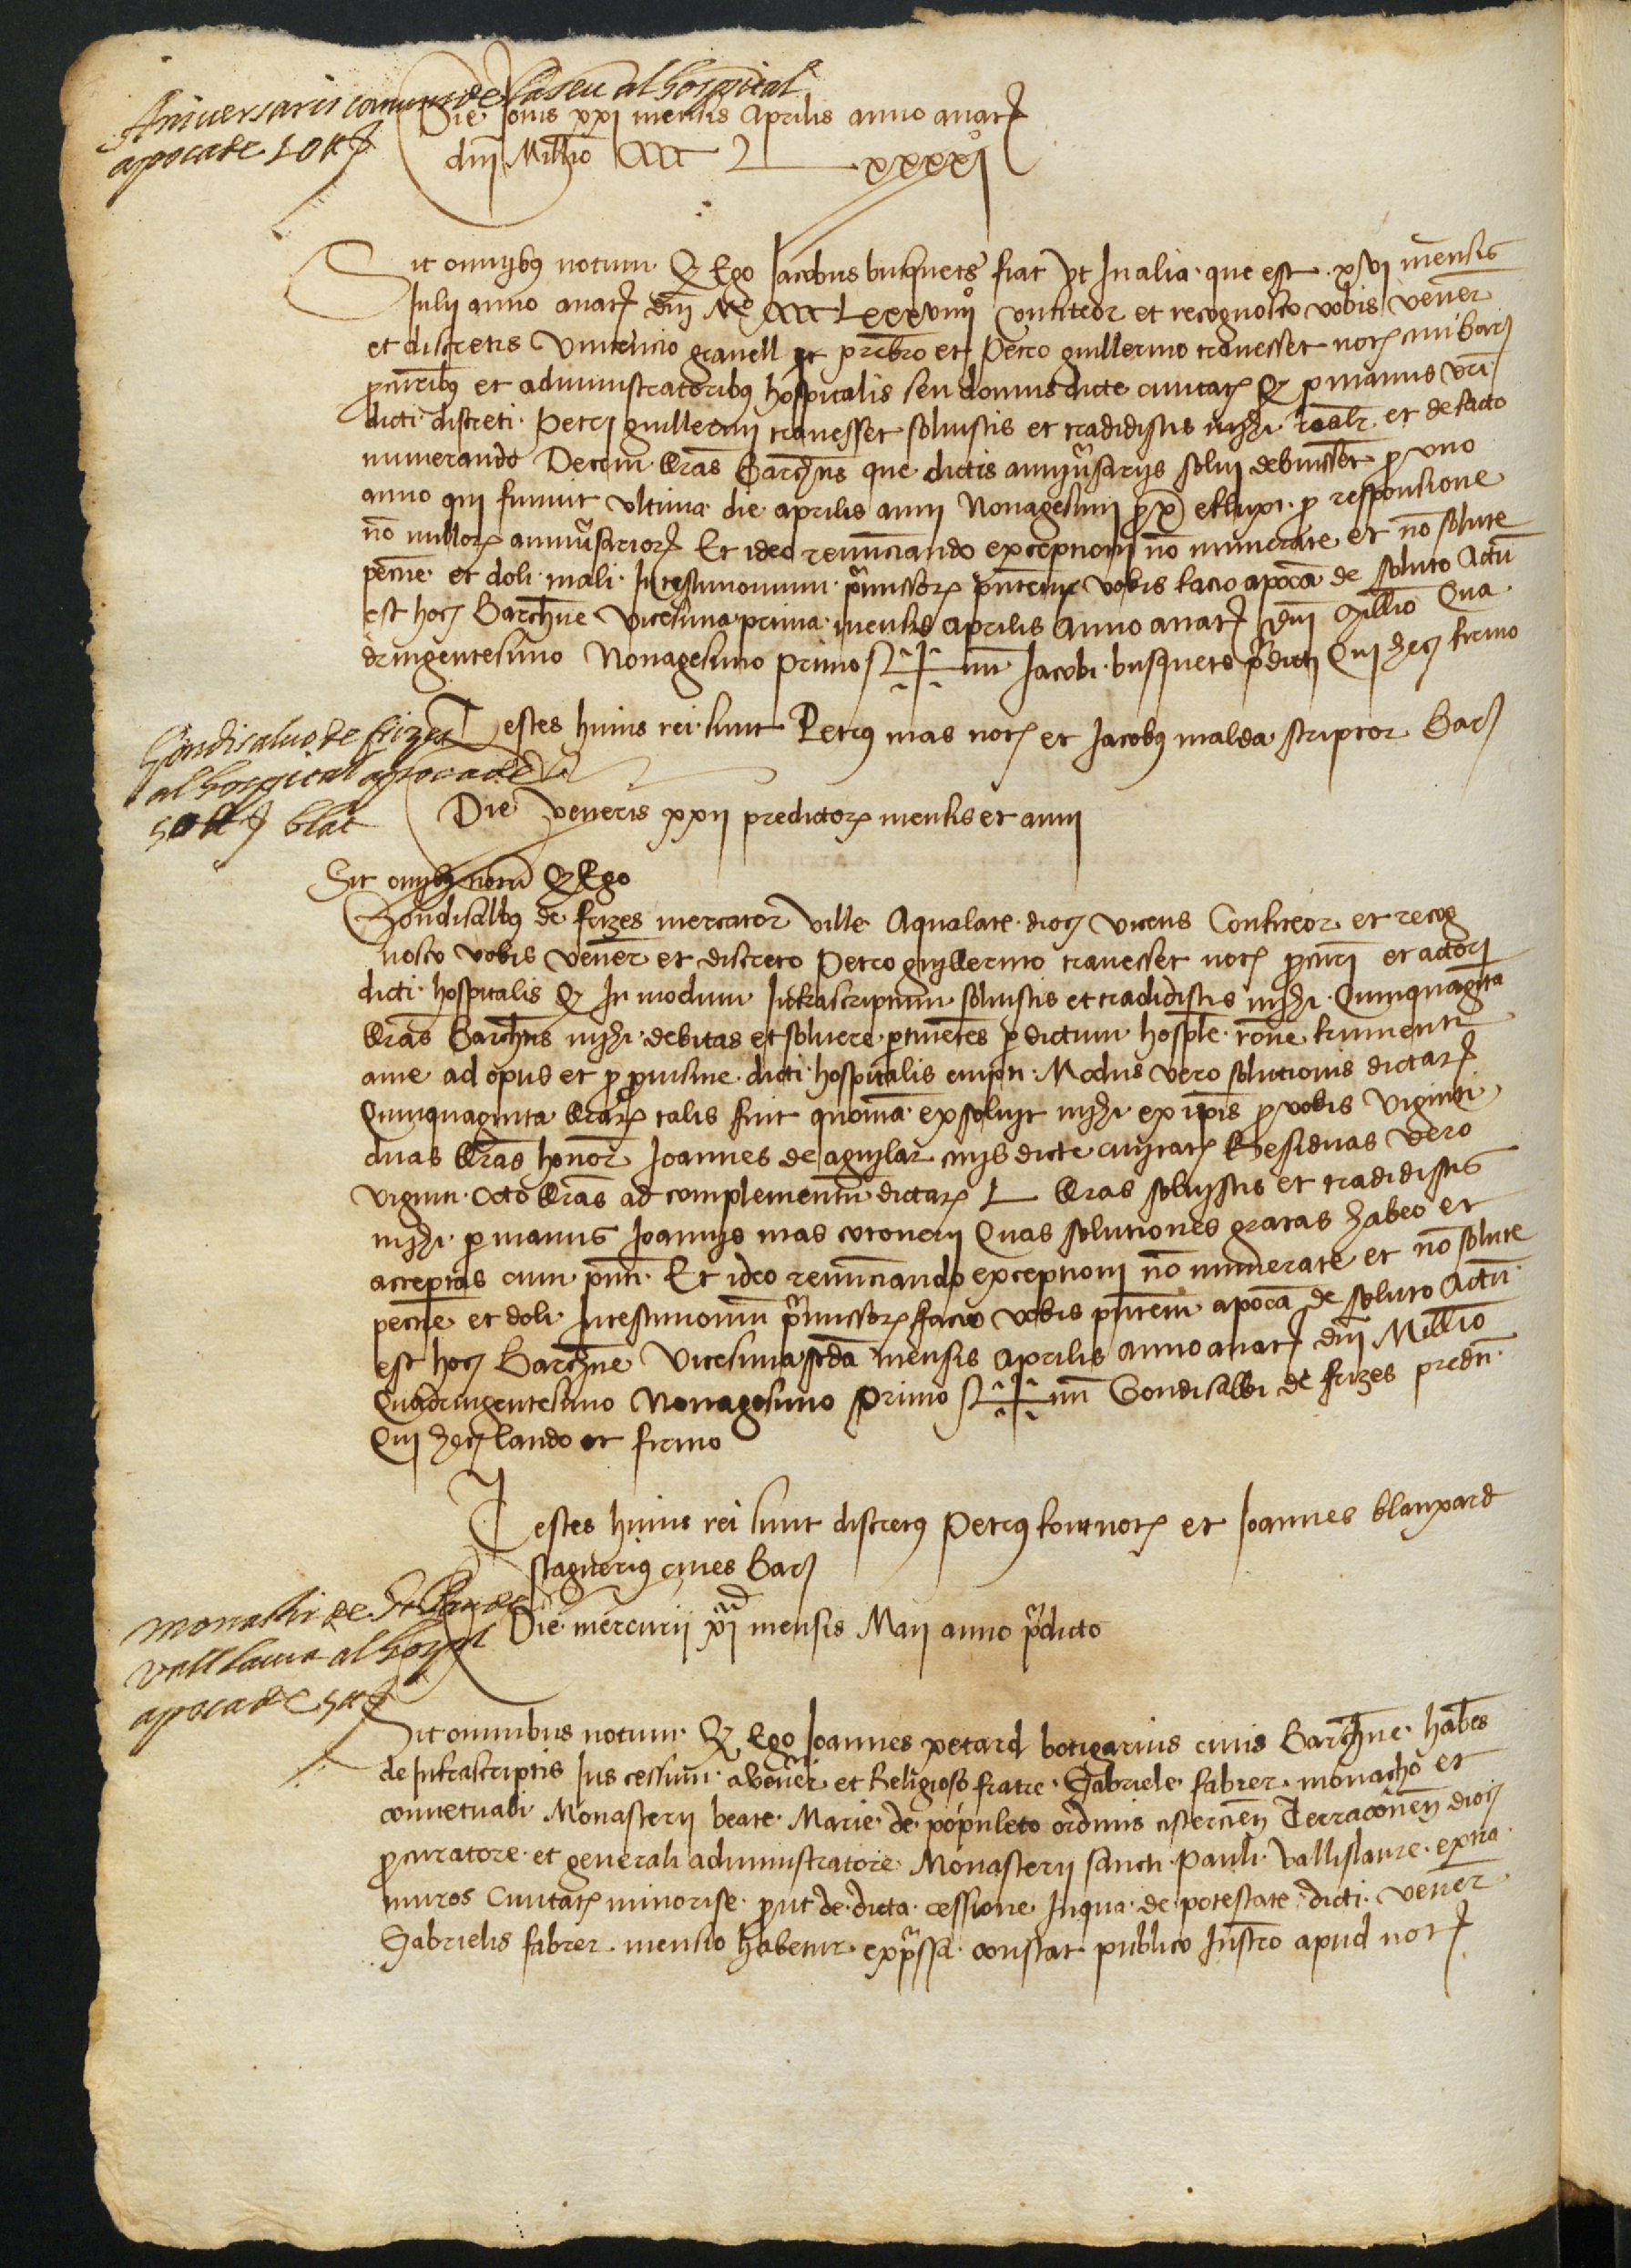 Aniversaris comuns de la seu al hospital
apoca de 10 ll ⸹
Die Jovis xxi mensis Aprilis anno a nat⸹
dnj Millio CCCC L xxxxi
Sit omnibus notum Q Ego Jacobus busquets fiat vt In alia que est xvi mensis
Julii anno a nat⸹ dnj Mo CCCC Lxxxviiijo confiteor et recognosco vobis vener
et discretis Vincencio gravell prebro et Petro guillermo travesset not civi barj
procuribus et administratoribus hospitalis seu domus dicte civitat Q p manus vri
dicti discreti Petri guillermi travesset solvistis et tradidistis michi realr et de facto
numerando Decem libras Barchns que dictis anniversariis solvi debuisset pro uno
anno qui finivit ultima die aprilis anni Nonagesimi prox efluxi pro responsione
no nullor anniversarior Et ideo renunciando exceptioni no numerate et no solute
pecnie et doli mali In testimonium premissor pntem vobis facio apoca de soluto Actu
est hoc Barchne vicesima prima mensis Aprilis Anno a nat⸹ dnj Millio Qua
dringentesimo Nonagesimo primo S+num Jacobi busquets predicti Qui hec firmo
Testes huius rei sunt Petrus mas not et Jacobus malda scriptor Barj
Gondisalvo de frizes
al hospital apoca de
50 ll ⸹ blat
Die veneris xxii predictor mensis et anni
Sit omnibus notu Q Ego
Gondisalbus de frizes mercator ville Aqualate dioc vicens Confiteor et recog
nosco vobis vener et discreto Petro guillermo travesset not procuri et actori
dicti hospitalis Q In modum Infrascriptum solvistis et tradidistis michi Quinquaginta
libras Barchns michi debitas et solvere ptinentes p dictum hosple rone frumenti
a me ad opus et p pvisine dicti hospitalis empti Modus vero solutionis dictar
Quinquaginta librar talis fuit quonia exsolvit michi ex ipis pro vobis viginti
duas libras honor Joannes de aguilar civis dicte civitat Residuas vero
viginti octo libras ad complementu dictar L libras solvistis et tradidistis
michi p manus Joannis mas cotonerii Quas solutiones gratas habeo et
acceptas cum pnti Et ideo renunciando exceptioni no numerate et no solute
pecnie et doli In testimonium premissor facio vobis pntem apoca de soluto Actu
est hoc Barchne vicesima scda mensis Aprilis anno a nat⸹ dnj Millio
Quadringentesimo Nonagesimo primo S+num Gondisalbi de frizes predti
Qui hec laudo et firmo
Testes huius rei sunt discretus Petrus font not et Joannes blanxard
stagnerius cives Barj
monastir de St Pau de
vall laura al hospl
apoca de 5 ll ⸹
Die mercurii xi mensis Maii anno predicto
Sit omnibus notum Q Ego Joannes petard botigarius civis Barchne habes
de Infrascriptis Ius cessum a vener et Religioso fratre Gabriele fabrer monacho et
conventuali Monasterii beate Marie de populeto ordinis cistercien Terraconen dioc
procuratore et generali administratore Monasterii sancti Pauli Vallislaure extra
muros Civitat minorise prout de dicta cessione In qua de potestate dicti vener
Gabrielis fabrer mensio habetur expressa constat publico Instro apud not